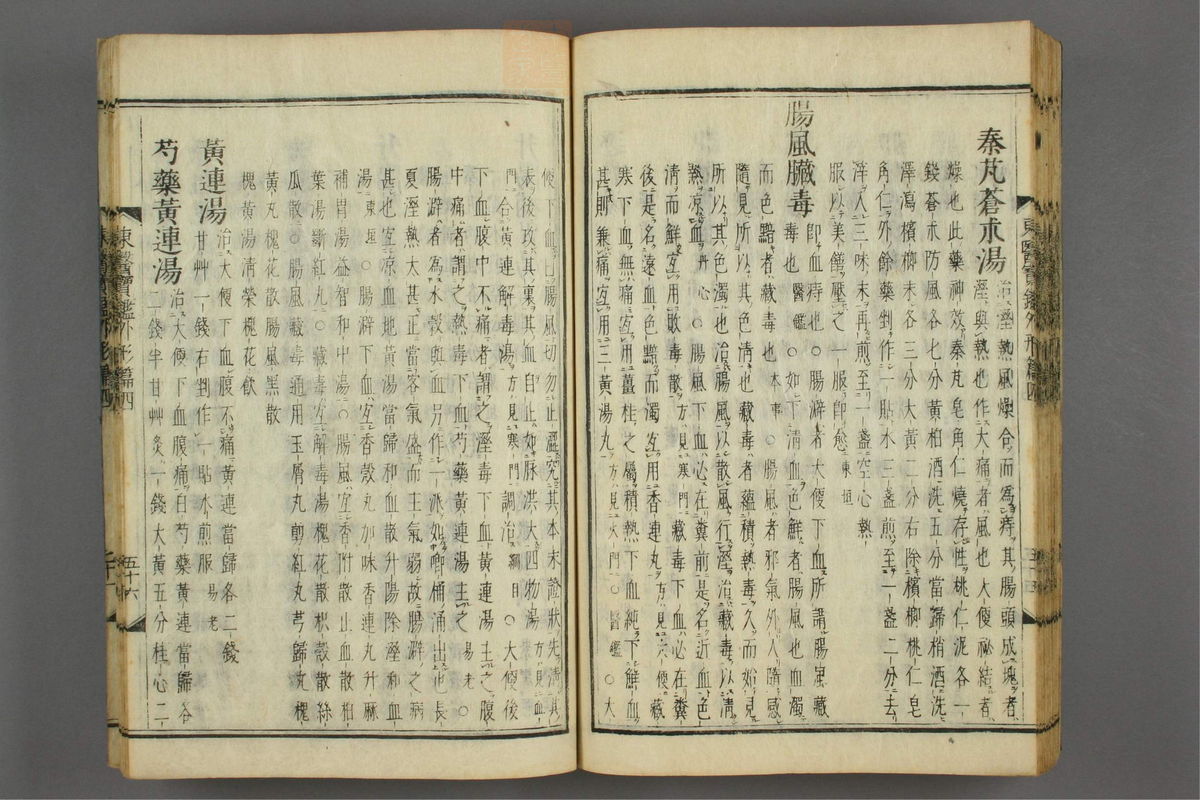 秦芃蒼朮湯治溼熱風燥合而爲痔其腸頭成塊者
溼與熱也作大痛者風也大便祕結者
燥也此藥神效秦芃皂角仁燒存性桃仁泥各一
錢蒼朮防風各七分黃柏酒洗五分當歸梢酒洗
澤瀉檳榔末各三分大黃二分右除檳榔桃仁皂
角仁外餘藥剉作一貼水三盞煎至一盞二分去
滓入三味末再煎至一盞空心熱
服以美饍壓之一服卽愈東垣
腸風臟毒卽血痔也○腸澼者大便下血所謂腸風藏
毒也醫鑑○如下淸血色鮮者腸風也血濁
而色黯者藏毒也本事○腸風者邪氣外入隨感
隨見所以其色淸也藏毒者蘊積熱毒久而始見
所以其色濁也治腸風以散風行溼治藏毒以淸
熱涼血丹心○腸風下血必在糞前是名近血色
淸而鮮宜用敗毒散方見寒門藏毒下血必在糞
後是名遠血色黯而濁宜用香連丸方見大便藏
寒下血無痛宜用薑桂之屬積熱下血純下鮮血
甚則兼痛宜用三黃湯丸方見火門醫鑑○大
便下血曰腸風切勿白止澁究其本末證狀先淸其
表後攻其裏其血自止如脉洪大四物湯方見血
門合黃連解毒湯方見寒門調治綱目○大便後
下血腹中不痛者謂之溼毒下血黃連湯主之腹
中痛者謂之熱毒下血芍藥黃連湯主之易老○
腸澼者爲水穀與血另作一派如唧桶涌出也長
夏溼熱太甚正當客氣盛而主氣弱故腸澼之病
甚也宜涼血地黃湯當歸和血散升陽除溼和血
湯東垣○腸澼下血宜香殼丸加味香連丸升麻
補胃湯益智和中湯○腸風宜香附散止血散柏
葉湯斷紅丸○藏毒宜解毒湯槐花散枳殼散絲
瓜散○腸風藏毒通用玉屑丸斷紅丸芎歸丸槐
黃丸槐花散腸風黑散
槐黃湯淸榮槐花飮
黃連湯治大便下血腹不痛黃連當歸各二錢
甘艸一錢右剉作一貼水煎服易老
芍藥黃連湯治大便下血腹痛白芍藥黃連當歸各
二錢半甘艸炙一錢大黃五分桂心二
東醫寶鑑外形篇四
五十六